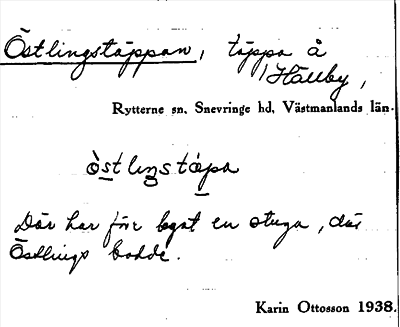 Östlingstäppan, täppa å
Hällby,
Rytterne sn. Snevringe hd. Västmanlands län.
òstlingstápa
Där har förr legat en stuga, där
Östlings bodde.
Karin Ottosson 1938.